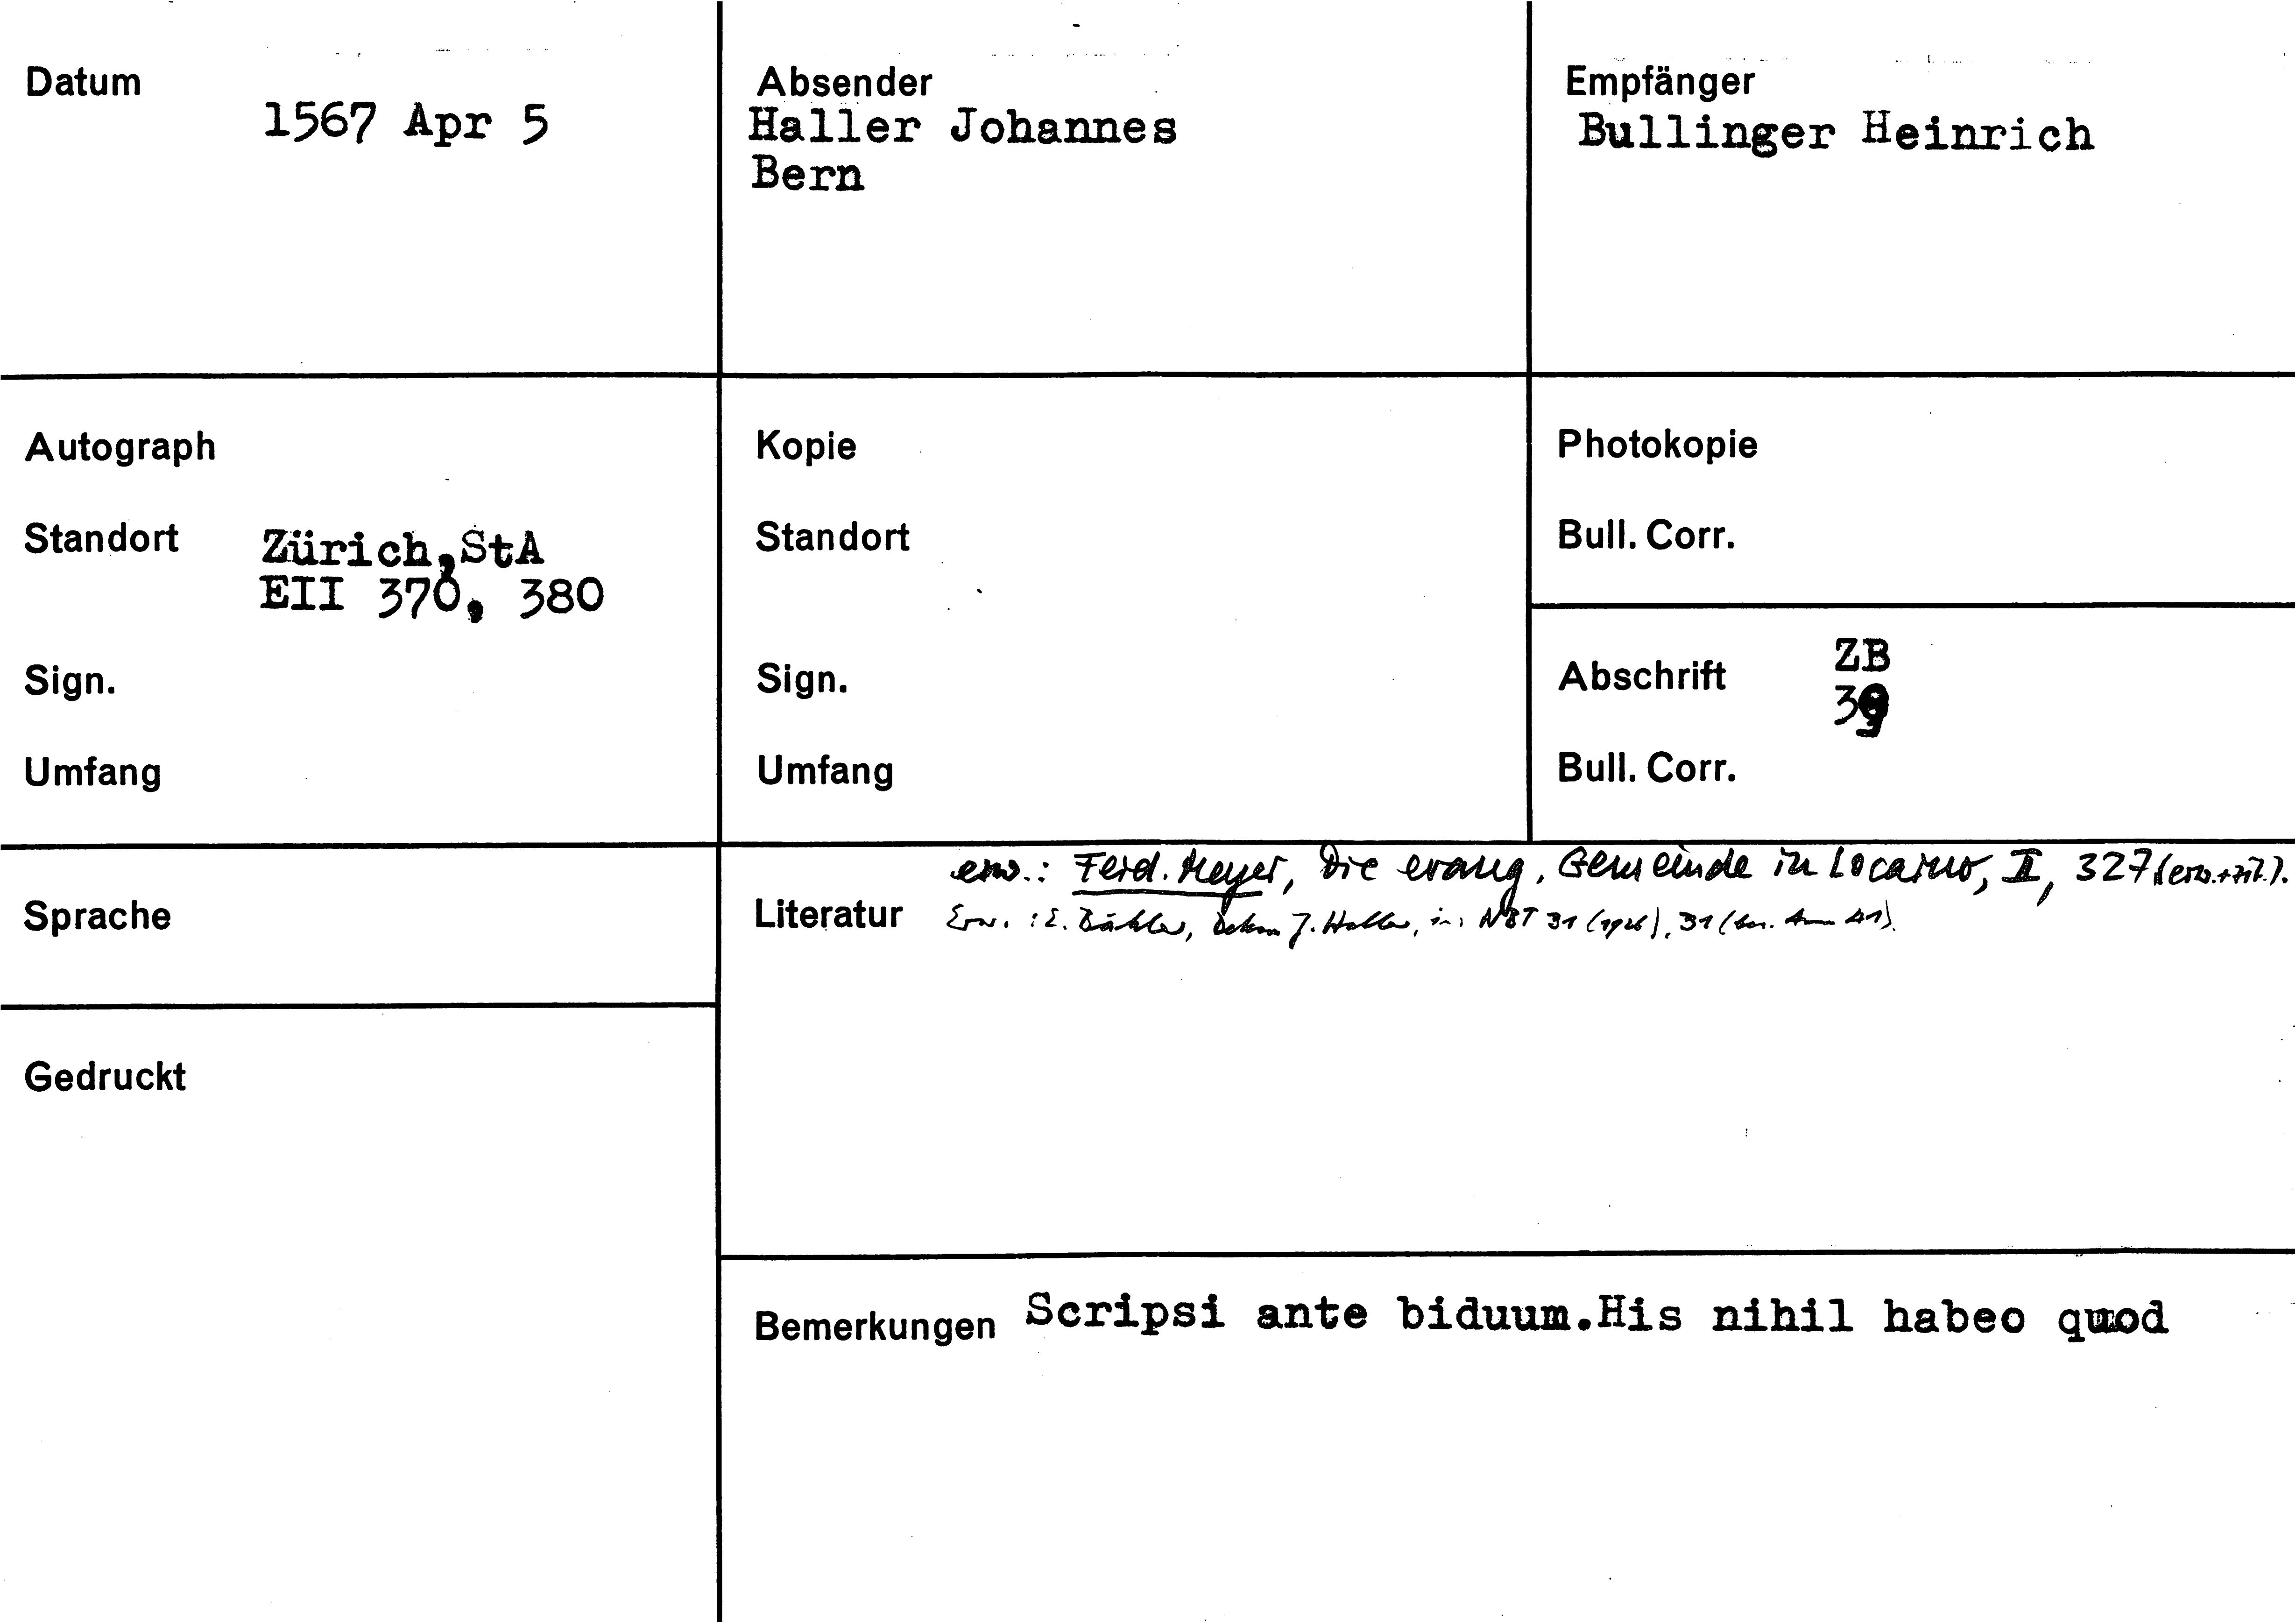 Datum
1567 Apr 5
Absender
Haller Johannes
Bern
Empfänger
Bullinger Heinrich
Autograph
Standort
Zürich,StA
EII 370, 380
Sign.
Umfang
Kopie
Standort
Sign.
Umfang
Photokopie
Bull. Corr.
Abschrift
ZB
39
Bull. Corr.
Sprache
Gedruckt
Literatur
erw.: Ferd. Meyer, Die evang. Gemeinde in Locarno, II, 327 (erw.+zit.).
Erw. : E. Bähler, Dekan J. Haller, in: NBT 31 (1926), 31 (bes. Anm 41).
Bemerkungen
Scripsi ante biduum.His nihil habeo quod